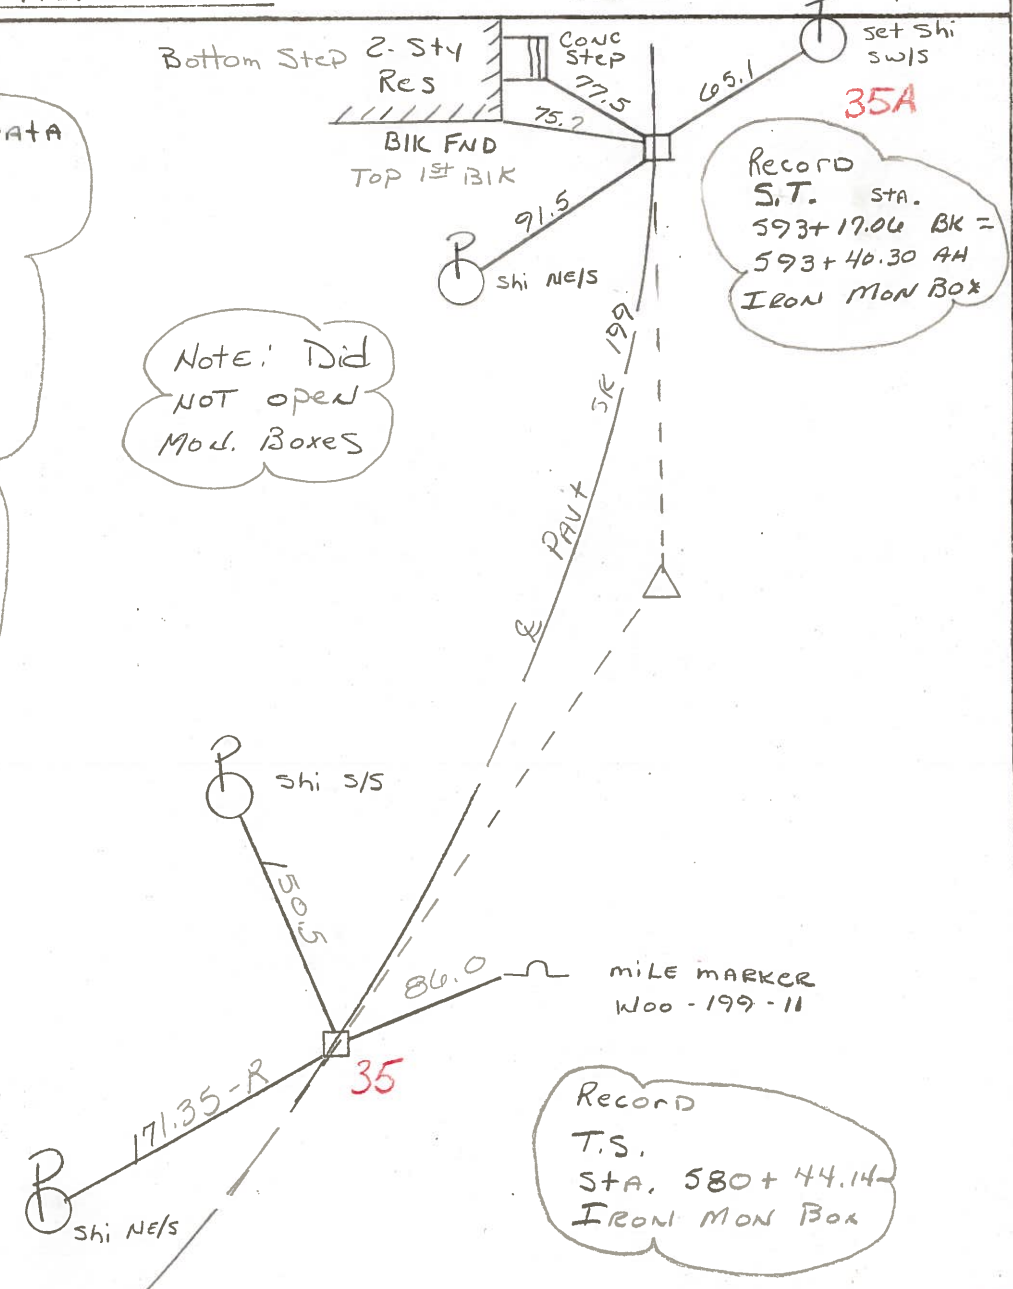 Bottom Step 2-Sty
Res
CONC
Step
77.5
75.2
65.1
Set Shi
SW/S
35A
ATA
Blk FND
Top 1st Blk
91.5
P
Shi NE/S
Record
S.T. STA.
593+17.06 BK =
593+40.30 AH
IRON MON Box
Note: Did
NOT open
Mon. Boxes
SR 199
PAV't
℄
P
Shi S/S
150.5
86.0
MILE MARKER
WOO-199-11
35
171.35-R
P
Shi NE/S
Record
T.S.
StA. 580+44.14
IRON MON Box